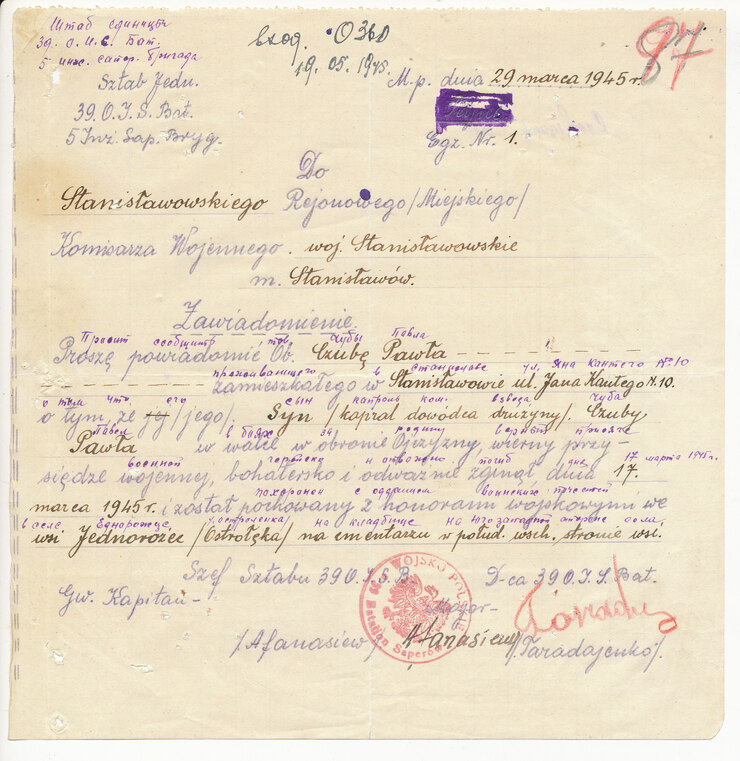 Штаб единицы
39. О.И.С. Бат.
5 инж. сапер. бригада
Sztab Jedn.
39. O.I.S. Bat.
5 Inż. Sap. Bryg.
0360
19.05.1945.
87
M.p. dnia 29 marca 1945 r.
Egz. Nr. 1.
Do
Stanisławowskiego Rejonowego/Miejskiego/
Komisarza Wojennego. woj. Stanisławowskie
m. Stanisławów.
Zawiadomienie
Просит сообщить тов. Чубы Павла
Proszę powiadomić Ob. Czubę Pawła
проживающего в станиславе ул. Яна кантего № 10
zamieszkałego w Stanisławowie ul. Jana Kantego N. 10.
о том что его сын взвода чуба
o tym, że jej/jego/. Syn /kapral dowódca drużyny/ Czuby
Павел в боях за родину верный присяге
Pawła w walce w obronie Ojczyzny, wierny przy-
военной геройски и отважно погиб дня 17 марта 1945 г.
siędze wojennej, bohatersko i odważnie zginął, dnia 17.
похоронен с отданием воинских почестей
marca 1945 r. i został pochowany z honorami wojskowymi we
в селе еднорожец /остроленка/ на кладбище на юго западной стороне села.
wsi Jednorożec /Ostrołęka/ na cmentarzu w połud. wsch. stronie wsi.
Szef Sztabu 39 O.I.S.B. D-ca 39 O.I.S. Bat.
Gw. Kapitan - Major -
WOJSKO POLSKIE
Batalion Saperów
/Afanasiew/ Afanasiew /Taradajenko/.